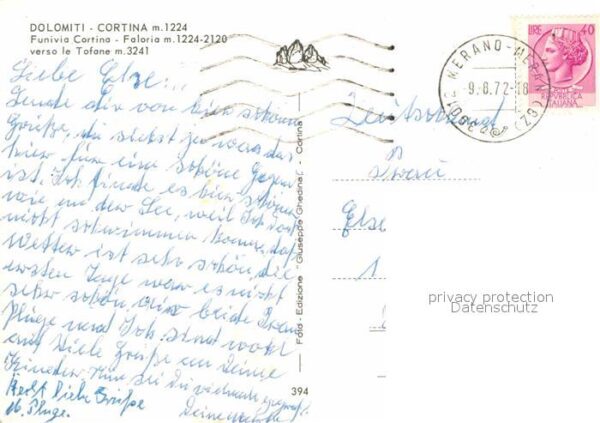 DOLOMITI - CORTINA m.1224
Funivia Cortina - Faloria m.1224-2120
verso le Tofane m.3241
Liebe Else!
Sende dir von hier schöne
Grüße, du siehst ja was das
hier für eine schöne Gegend
ist. Ich finde es hier schöner
wie an dem See, weil ich doch
nicht schwimmen kann, das
Wetter ist sehr schön, die
ersten Tage war es nicht
sehr schön, wir beide Frau
Pluge und Ich sind wohl
auf Viele Grüße an Deine
Kinder
herzl. liebe Grüße
M. Pluge.
Deine
Foto - Edizione "Giuseppe Ghedina" - Cortina
394
39012 MERANO-MERAN (BZ)
9.8.72-18
LIRE 40
REPUBBLICA
ITALIANA
Deutschland
Frau
Else
1
privacy protection
Datenschutz